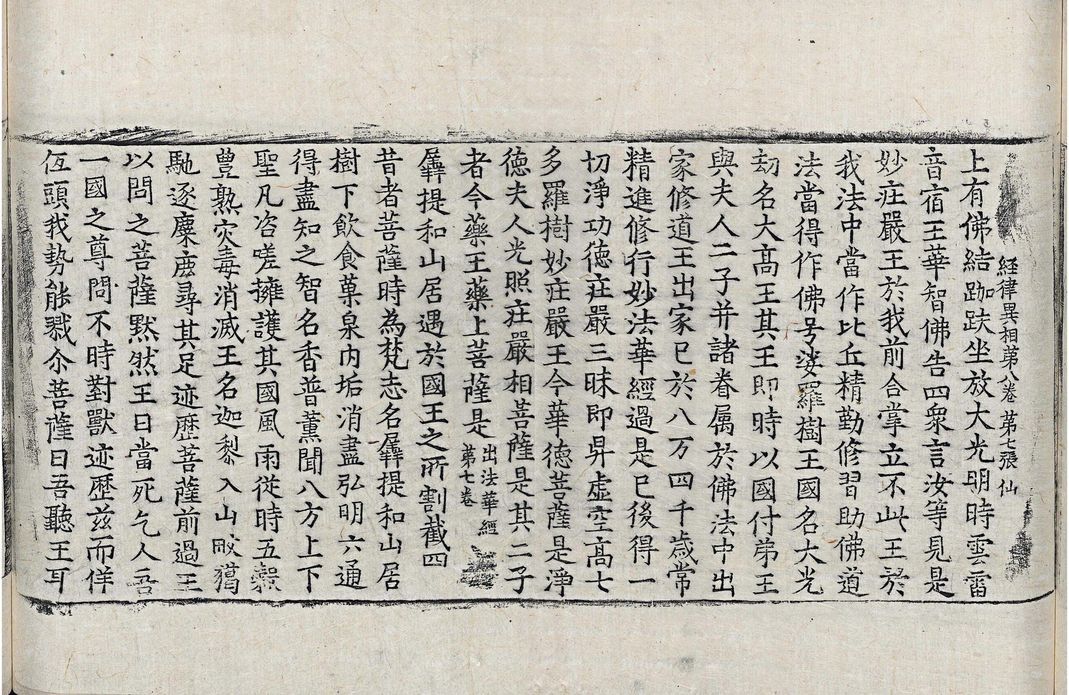 経律異相第八卷 第七張 仙
上有佛結跏趺坐放大光明時雲雷
音宿王華智佛告四衆言汝等見是
妙庄嚴王於我前合掌立不此王於
我法中當作比丘精勤修習助佛道
法當得作佛号娑羅樹王國名大光
刧名大高王其王即時以國付弟王
與夫人二子并諸眷属於佛法中出
家修道王出家已於八万四千歲常
精進修行妙法華經過是已後得一
切淨功德庄嚴三昧即昇虛空高七
多羅樹妙庄嚴王今華德菩薩是淨
德夫人光照庄嚴相菩薩是其二子
者今藥王藥上菩薩是 出法華經第七卷
羼提和山居遇於國王之所割截四
昔者菩薩時為梵志名羼提和山居
樹下飲食菓泉内垢消盡弘明六通
得盡知之智名香普薰聞八方上下
聖凡咨嗟擁護其國風雨從時五穀
豊熟灾毒消滅王名迦黎入山畋獦
馳逐麋鹿尋其足迹歷菩薩前過王
以問之菩薩黙然王曰當死乞人吾
一國之尊問不時對獸迹歷玆而佯
低頭我勢能戮尒菩薩曰吾聽王耳